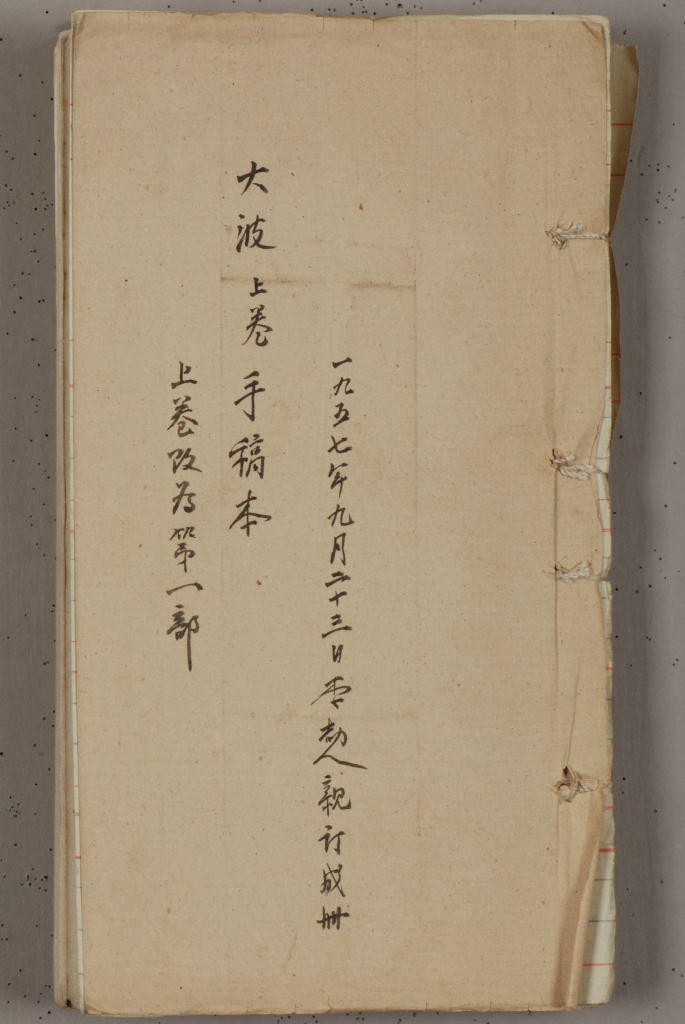 一九五七年九月二十三日李劼人親訂成冊
大波上卷手稿本
上卷改为第一部